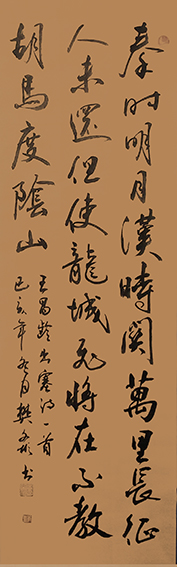 秦时明月漢時関萬里長征
人未還但使龍城飛將在不教
胡馬度陰山
王昌龄出塞诗一首
己亥年冬月樊书